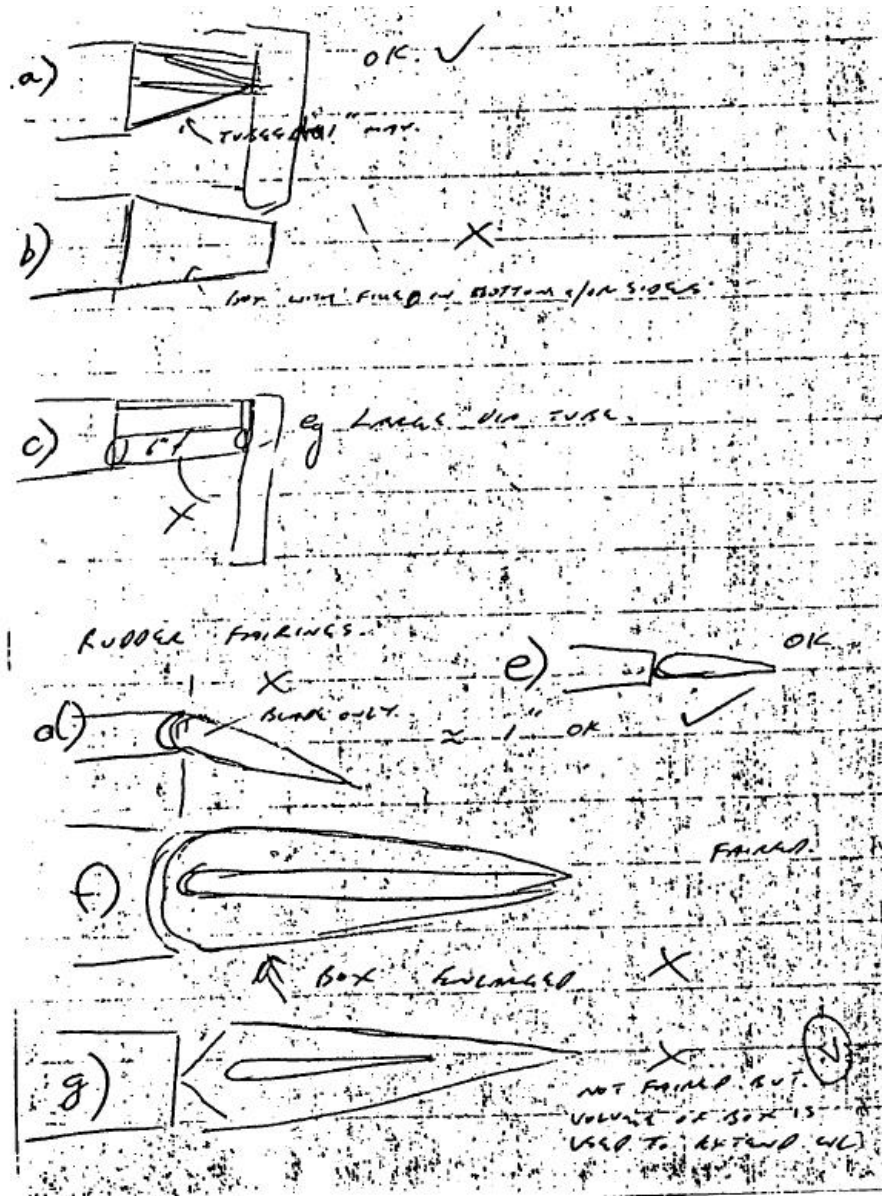 a)
OK ✓
" MAX.
b)
X
BOX WITH FILLED IN BOTTOM &/OR SIDES
c)
eg LARGE DIA TUBE.
X
RUDDER FAIRINGS.
X
e)
OK
✓
d)
BLADE ONLY.
≈ 1" OK
f)
FAIRED
BOX ENLARGED
X
g)
X
NOT FAIRED BUT
VOLUME OF BOX IS
USED TO EXTEND WL